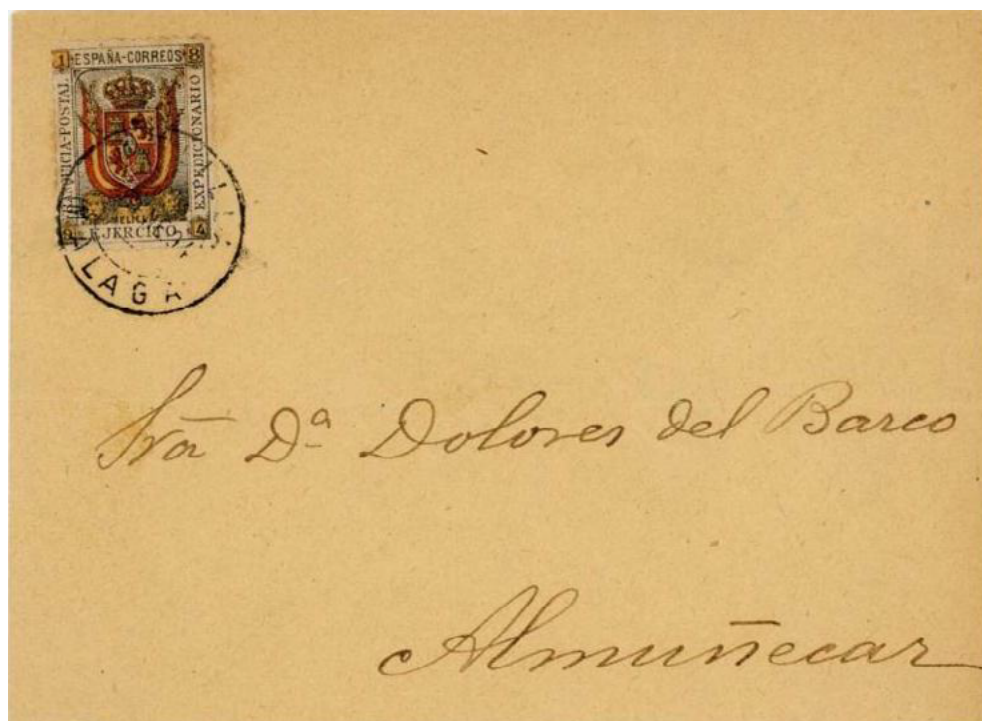 1 ESPAÑA-CORREOS 8
FRANQUICIA-POSTAL
EXPEDICIONARIO
9 EJERCITO 4
MALAGA
Sra Dª Dolores del Barco
Almuñecar